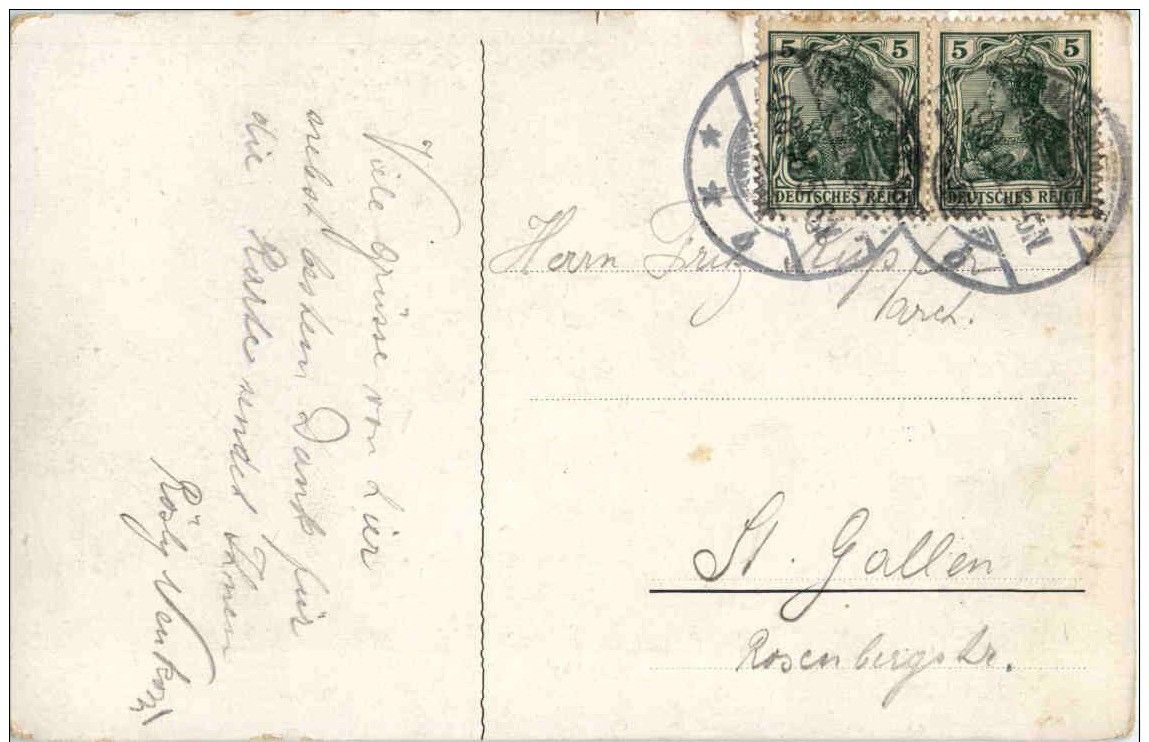 Viele Grüsse von hier
nebst besten Dank für
die Karte sendet Ihnen
Rösly
5 5 5 5
DEUTSCHES REICH DEUTSCHES REICH
Herrn Fritz
Arch.
St. Gallen
Rosenbergstr.